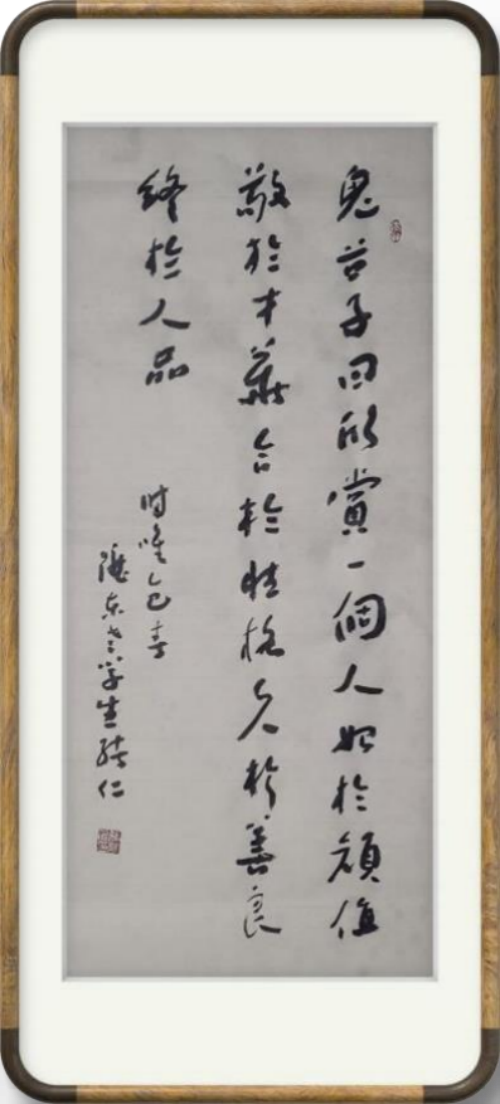 鬼谷子曰欣賞一個人始於顏值
敬於才華合於性格久於善良
終於人品
時唯乙巳春
隴東老學生結仁